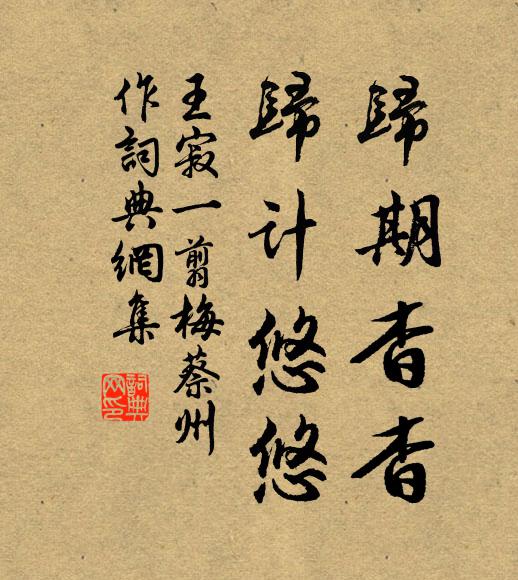 歸期杳杳
歸計悠悠
王寂一剪梅蔡州
作詞典網集
詞典網印